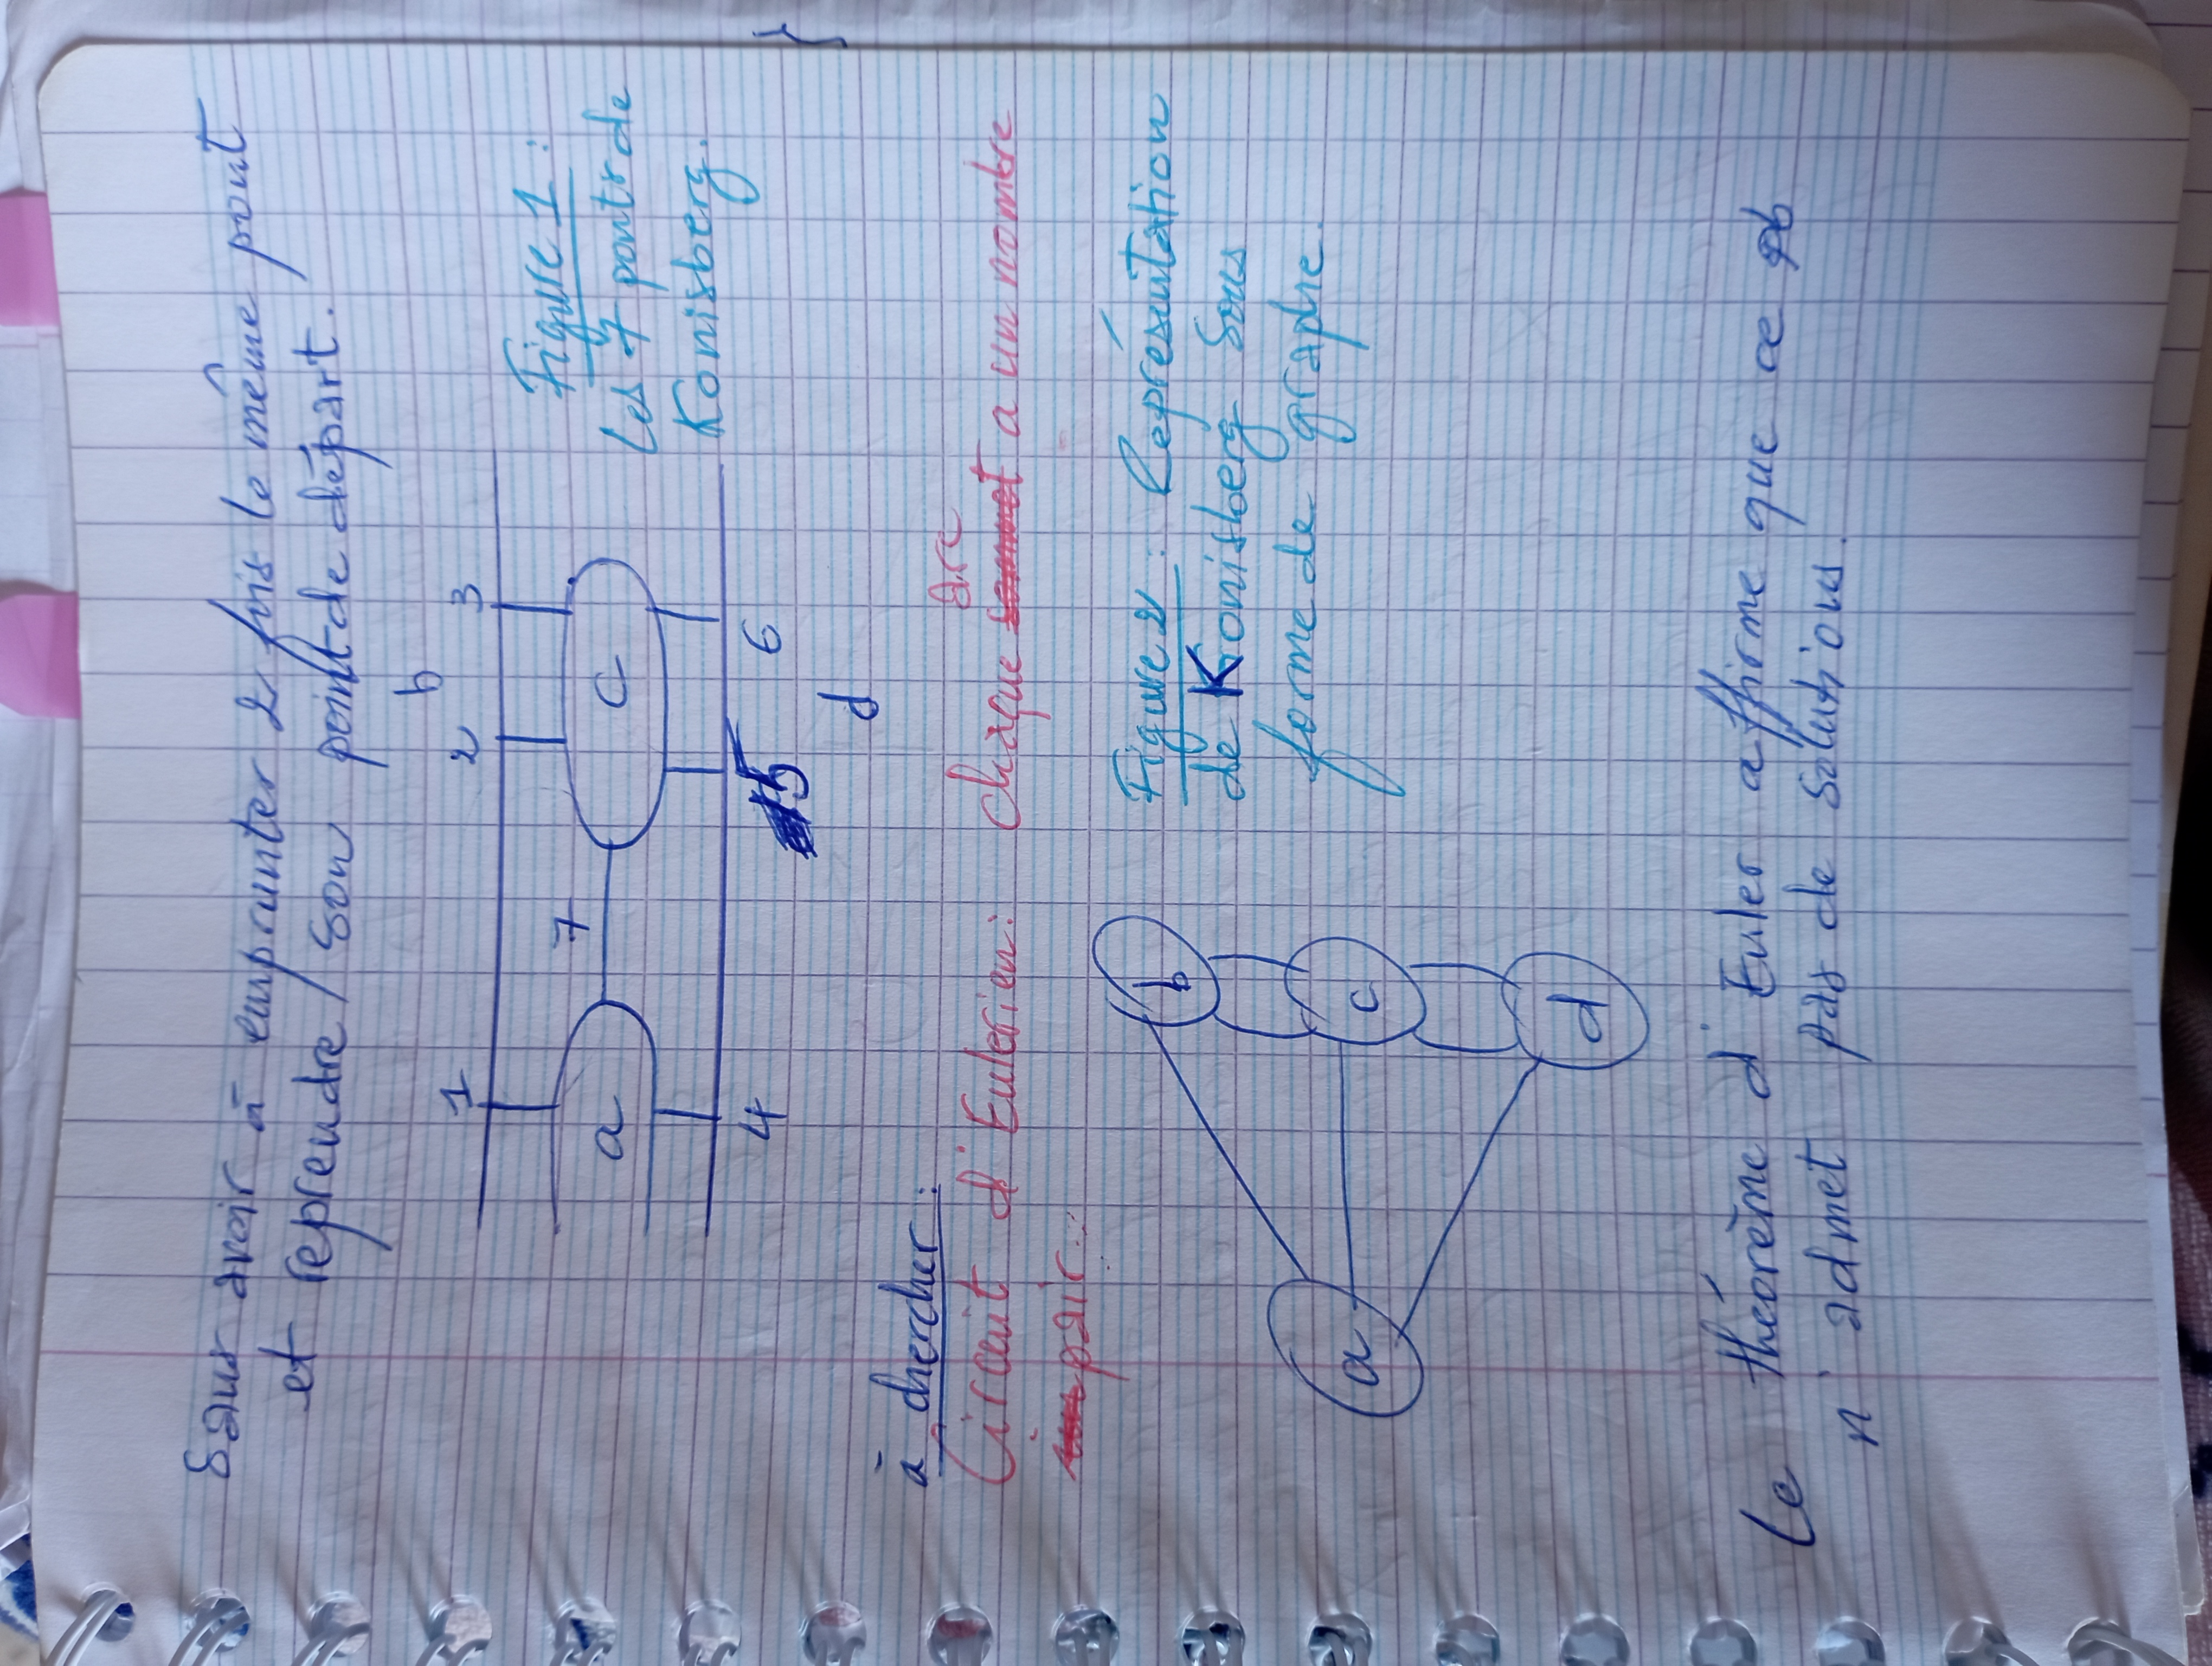 sans avoir à emprunter 2 fois le même pont
et reprendre / son point de départ.
1 2 b 3
a 7 c
4 5 6
d
Figure 1 :
Les 7 ponts de
Konisberg.
à chercher :
arc
Circuit d'Eulerien: chaque sommet a un nombre
pair...
a
b
c
d
Figure 2 : Représentation
de Konisberg sous
forme de graphe.
Le théorème d'Euler affirme que ce pb
n'admet pas de solutions.